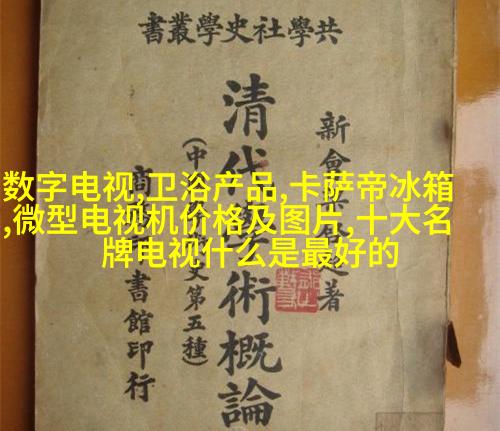 共學社史學叢書
新會著
清代學術概論
(中史第五種)
商書館印行
数字电视,卫浴产品,卡萨帝冰箱
,微型电视机价格及图片,十大名
牌电视什么是最好的